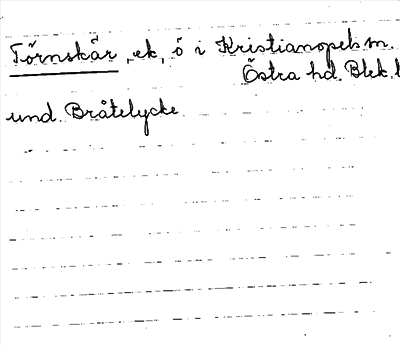 Törnskär, ek, ö i Kristianopels m.
Östra hd. Blek. l
und. Bråtelycke